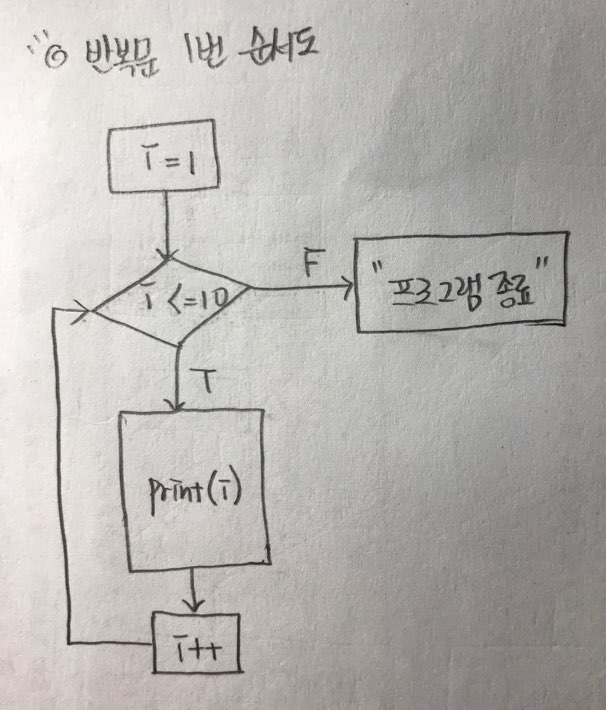 ◎ 반복문 1번 순서도
i=1
i<=10
F
"프로그램 종료"
T
print(i)
i++